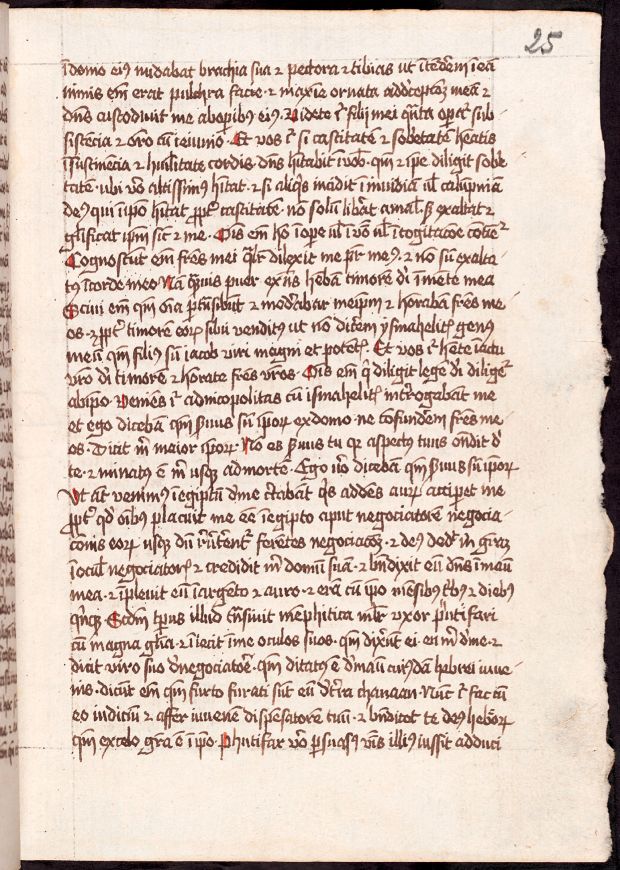 25
ī domo eiꝰ nudabat brachia sua ⁊ pectora ⁊ tibias ut ītēderē ī eā
nimis em̄ erat pulchra facie · ⁊ maxīe ornata ad dceptōꝫ meā ⁊
dn̄s custodivit me ab opibus eiꝰ · Videte iḡ filii mei quāta opat᷑ sub
sistencia ⁊ orō cū ieiunio · Et vos iḡ si castitatē ⁊ sobͤtatē hēatis
ī sustinēcia ⁊ hūilitate cordis · dn̄s hītabit ī vob̄ · qm̄ ⁊ ip̄e diligit sobͤ
tatē · ubi vō altissimꝰ hītat · ⁊ si aliqͥs incidit ī invidiā ul̄ calūpniā
deꝰ qui ī ip̄o hītat ꝓpt᷑ castitatē · nō solū libat a mal̄ · sꝫ exaltat ⁊
gl̄ificat ip̄m sic̄ ⁊ me · Oīs em̄ hō ī ope ul̄ ī vō ul̄ ī cogitacōe cotiet᷑
Cognoscūt em̄ fr̄es mei qual̄r dilexit me pr̄ meꝰ · ⁊ nō sū exalta
tꝰ ī corde meo · Nā quāvis puer exn̄s hēbā timorē dī ī mente mea
Scivi em̄ qm̄ oīa ptͣnsibūt ⁊ modͤrabar meip̄m ⁊ honorabā fr̄es me
os · ⁊ ꝓpt᷑ timorē eoꝝ silui venditꝰ ut nō dicerē ysmahelitꝭ genꝰ
meū qm̄ filiꝰ sū iacob viri magni et potētꝭ · Et vos iḡ hēte ī actu
vr̄o dī timorē ⁊ honorate fr̄es vr̄os · Oīs em̄ qͥ diligit legē dī diliget᷑
ab ip̄o · Veniēs iḡ ad indicopolitas cū ismahelitꝭ int̄rogabāt me
et ego dicebā qm̄ ẜvus sū ip̄oꝝ ex domo · ne cōfunderē fr̄es me
os · Dicit m̄ maior ip̄oꝝ · Nō es ẜvus tu qꝛ aspectꝰ tuus on̄dit dͤ
te · ⁊ minatꝰ ē m̄ usqꝫ ad mortē · Ego vō dicebā qm̄ ẜvus sū ip̄oꝝ
Ut aūt venimꝰ ī egiptū dͤ me cͤtabāt qͥs addēs aurū accipet me
ꝓpt᷑ qd̄ oībus placuit me eē ī egipto aput negociatorē negocia
cōnis eoꝝ usqꝫ dū rͤvertēnt᷑ ferētes negociacōꝫ · ⁊ deꝰ dedit m̄ grāꝫ
ī ocul̄ negociatorꝭ ⁊ credidit m̄ domū suā · ⁊ bn̄dixit eū dn̄s ī manu
mea · ⁊ īplevit eū ī argēto ⁊ auro · ⁊ erā cū ip̄o mēsibus tͥbꝰ ⁊ diebꝰ
qͥnqꝫ · Scd̄m tp̄us illud tͣnsivit mēphitica ml̓r uxor phutifari
cū magna gl̄ia · ⁊ īiecit ī me oculos suos · qm̄ dixerūt ei eu᷑ m̄ dͤ me · ⁊
dicit viro suo dͤ negociatore · qm̄ ditatꝰ ē dͤ manu cuiꝰdā hebrei iuve
nis · dicūt em̄ qm̄ furto furati sūt eū dͤ tr̄ra chanaan · Nūc iḡ fac cū
eo iudiciū ⁊ affer iuvenē dispēsatorē tuū · ⁊ bn̄dicet te deꝰ hebr̄oꝝ
qm̄ ex celo grā ē ī ip̄o · Phutifar vō persuasꝰ vb̄is illiꝰ iussit adduci